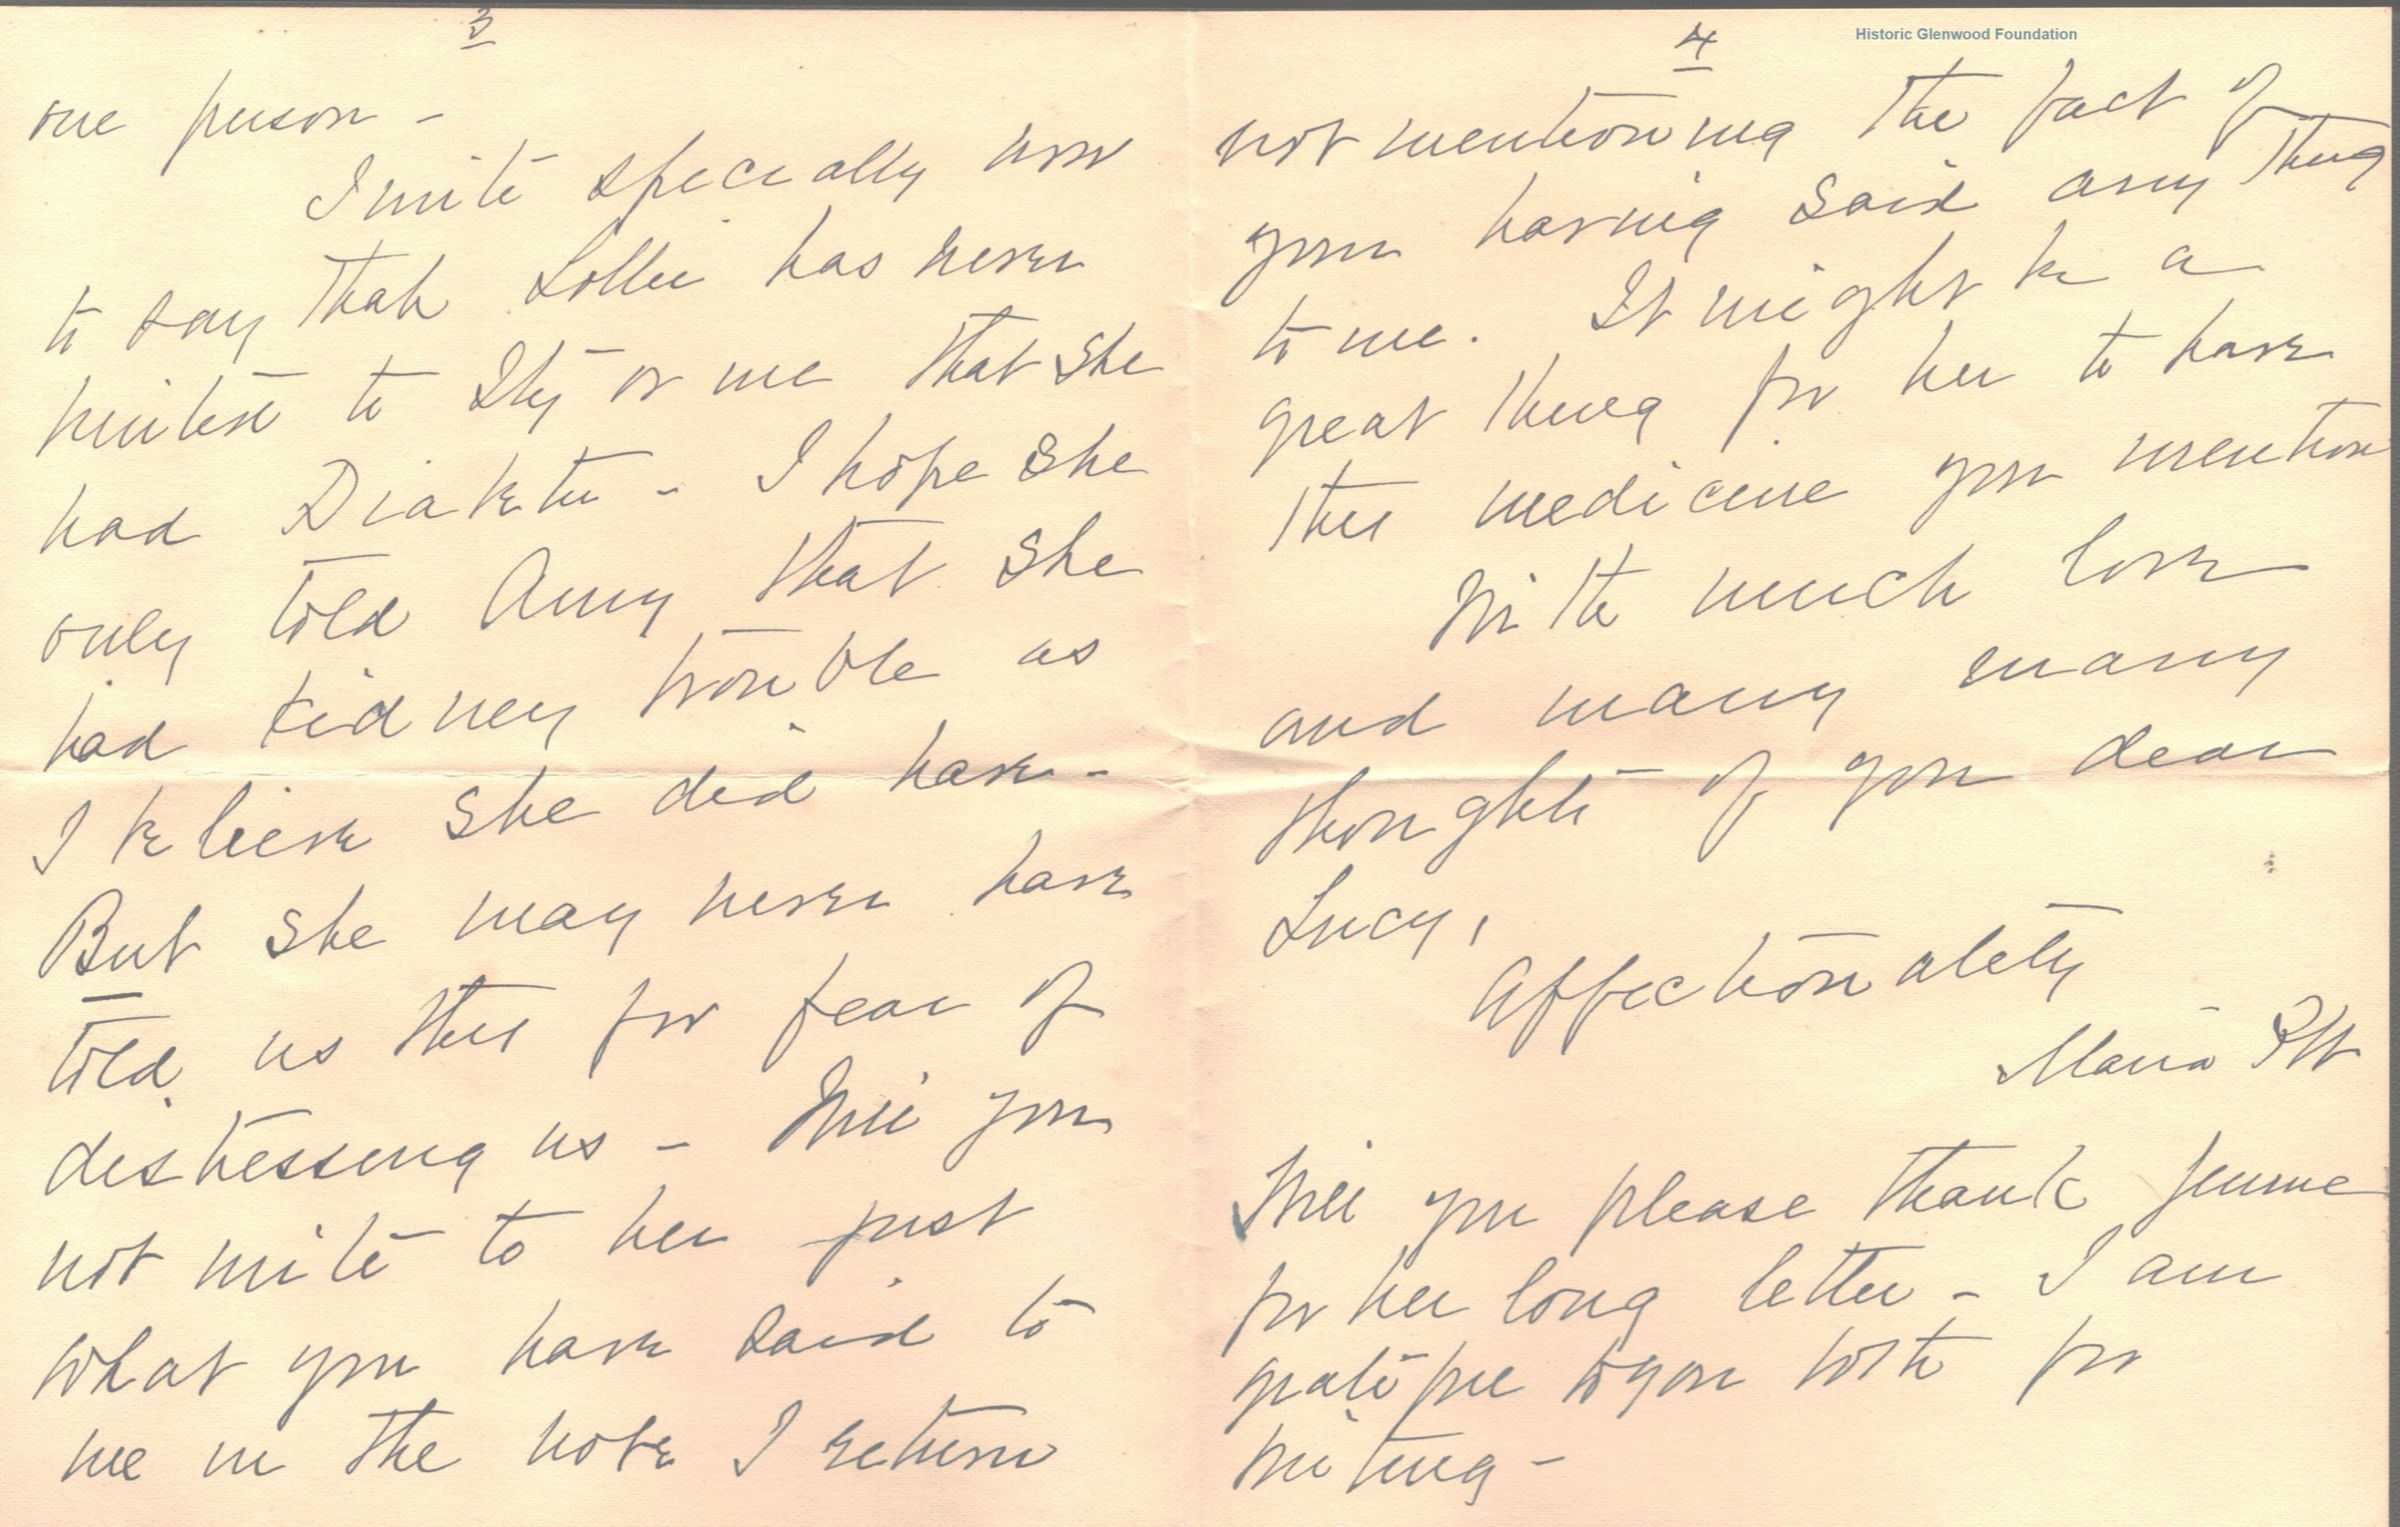 3
one person -
I write specially now
to say that Lollie has never
hinted to or me that she
had Diabetes - I hope she
only told Amy that she
had kidney trouble as
I believe she did have -
But she may never have
told us this for fear of
distressing us - Will you
not write to her just
what you have said to
me in the note I return
4
Historic Glenwood Foundation
not mentioning the fact of
your having said any thing
to me. It might be a
great thing for her to have
this medicine you mention
With much love
and many many
thoughts of you dear
Lucy,
Affectionately
Maria
Will you please thank Jennie
for her long letter - I am
grateful to you both for
writing -